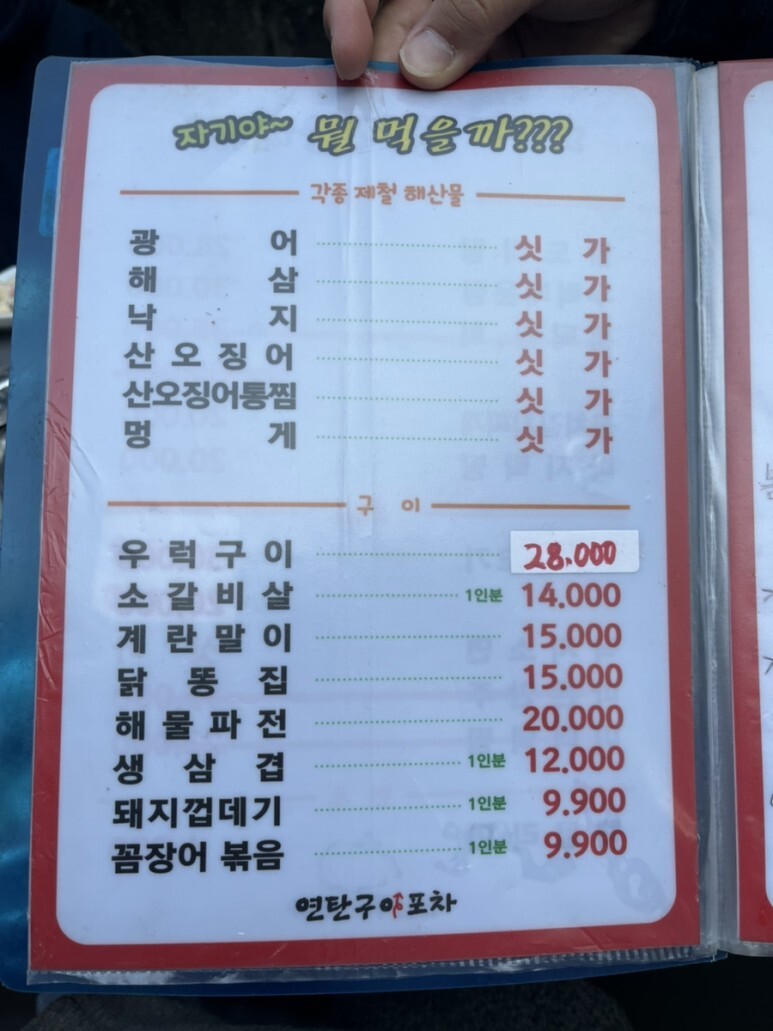 자기야~ 뭘 먹을까???
각종 제철 해산물
광어 싯가
해삼 싯가
낙지 싯가
산오징어 싯가
산오징어통찜 싯가
멍게 싯가
구이
우럭구이 28.000
소갈비살 1인분 14.000
계란말이 15.000
닭똥집 15.000
해물파전 20.000
생삼겹 1인분 12.000
돼지껍데기 1인분 9.900
꼼장어 볶음 1인분 9.900
연탄구이포차